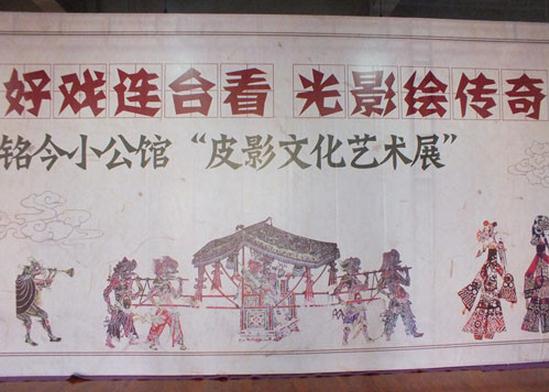 好戏连台看 光影绘传奇
铭今小公馆“皮影文化艺术展”